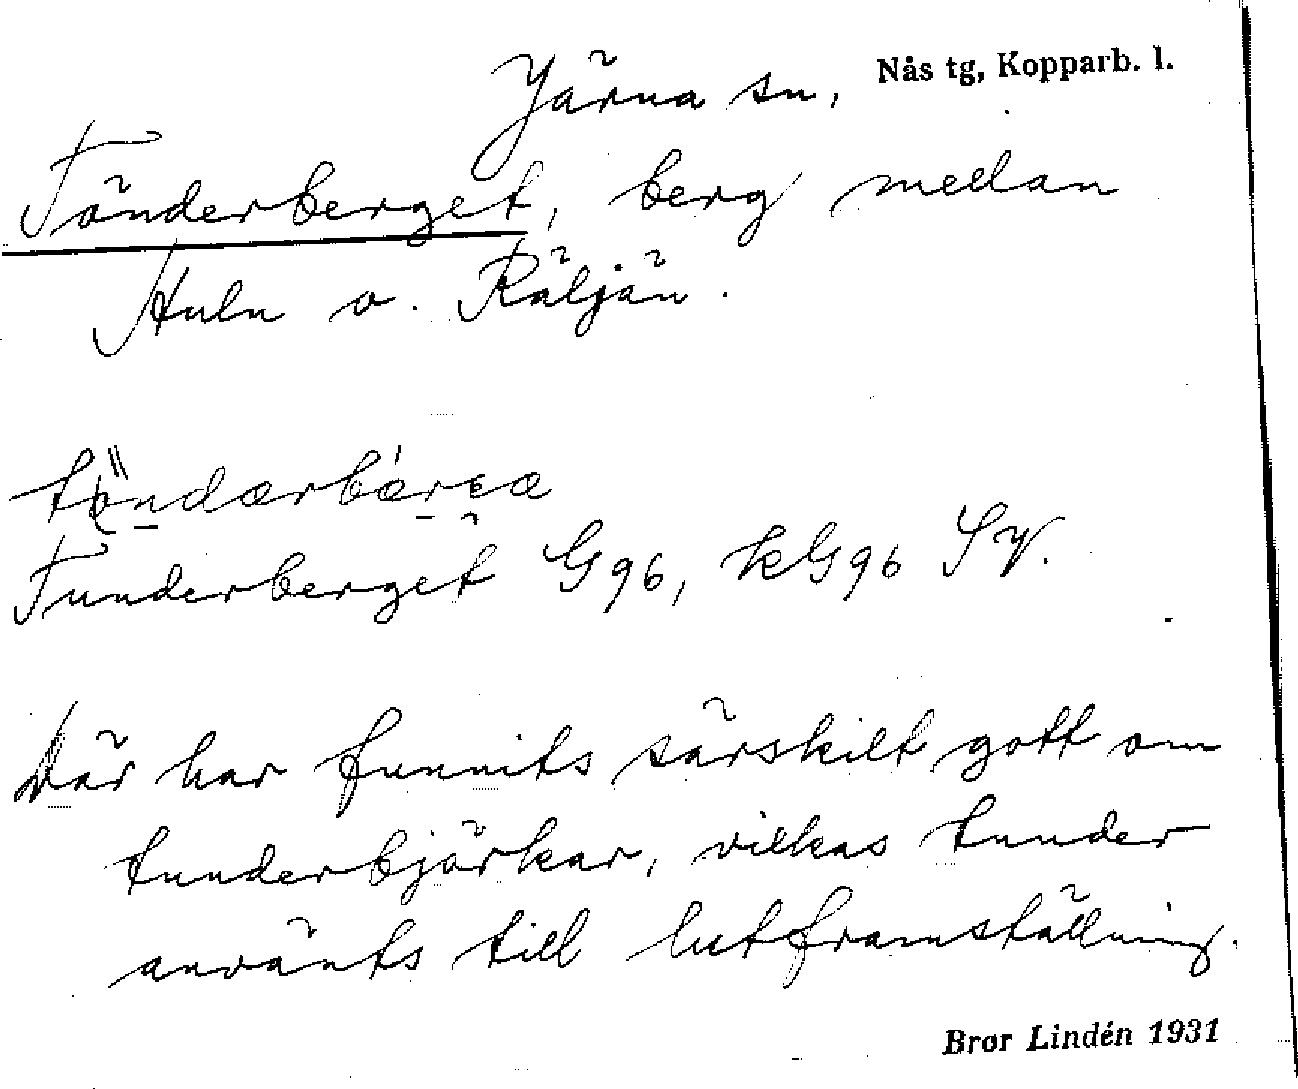 Järna sn, Nås tg, Kopparb. l.
Tönderberget, berg mellan
Huln o. Räljän.
Tunderberget G96, kG96 SV.
Där har funnits särskilt gott om
tunderbjörkar, vilkas tunder
använts till lutframställning.
Bror Lindén 1931